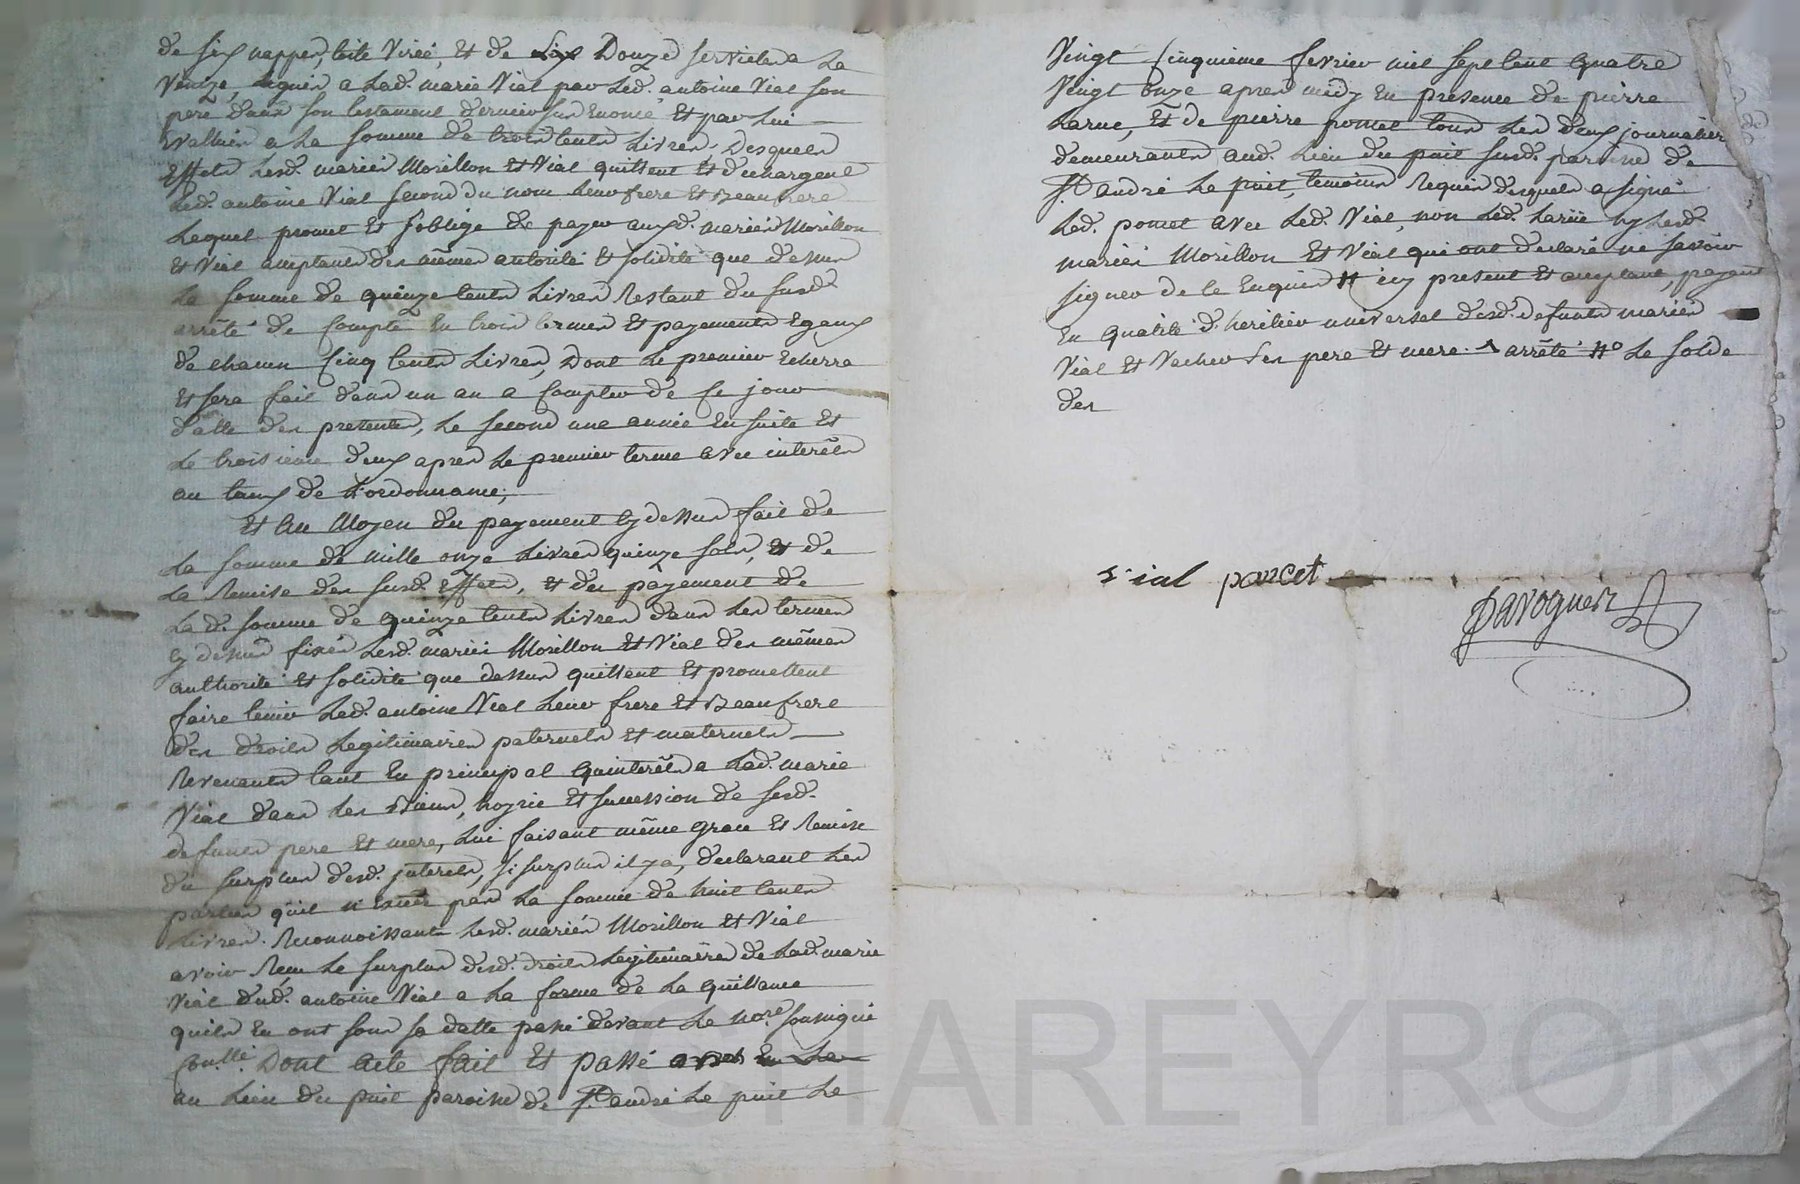 de six nappes, toile Virée, et de six Douze serviettes a la
Venize, leguées a lad. marie Vial par led. antoine Vial son
pere dans son testament dernier sur Enoncé et par lui
Evalluées a la somme de trois cents livres. Desquels
Effets lesd. mariés Morillon et Vial quittent et dechargent
led. antoine Vial second du nom leur frere et Beaufrere
Lequel promet et s'oblige de payer auxd. mariés Morillon
et Vial acceptants des mêmes autorité et solidité que dessus
La somme de quinze cents Livres Restant du susd.
arrêté de Compte en trois termes et payements Egaux
de chacun Cinq cents Livres, Dont le premier Echerra
et sera fait dans un an a compter de ce jour
datte des presentes, le second une année Ensuite et
Le troisieme deux apres le premier terme avec interêts
au taux de l'ordonnance;
et au Moyen du payement cy dessus fait de
La somme de mille onze Livres quinze sols, et de
La Remise des susd. Effets, et du payement de
Lad. somme de Quinze cents Livres dans les termes
cy dessus fixés lesd. mariés Morillon et Vial des mêmes
authorité et solidité que dessus quittent et promettent
faire tenir led. antoine Vial leur frere et Beaufrere
des droits Legitimaires paternels et maternels
Revenants tant En principal Quinterêts a lad. marie
Vial dans les Biens, hoyrie et succession de sesd.
defunts pere et mere, lui faisant même Grace et Remise
du surplus desd. interets, si surplus il y a, declarant les
parties qu'il n'Excede pas la somme de huit cents
Livres. Reconnoissants lesd. mariés Morillon et Vial
avoir Reçu le surplus desd. droits legitimaires de lad. marie
Vial dud. antoine Vial a la forme de la quittance
quils En ont sous sa datte passé devant le no.re soussigné
con.llé. Dont acte fait et passé En la
au lieu du puit paroisse de St. andré le puit le
Vingt Cinquieme fevrier mil sept cent Quatre
Vingt onze apres midy En presence de pierre
Larue, et de pierre poncet tous les deux journaliers
demeurants aud. Lieu du puit susd. paroisse de
St. andré le puit, temoins Requis desquels a signé
led. poncet avec led. Vial, non led. Larüe ny lesd.
mariés Morillon et Vial qui ont declaré ne savoir
signer de ce Enquis # icy present et acceptant, payant
En qualité d'heritier universel desd. defunts mariés
Vial et Vacher ses pere et mere. arrêté # le solde
des
vial poncet
Pavoguery
CHAREYRON